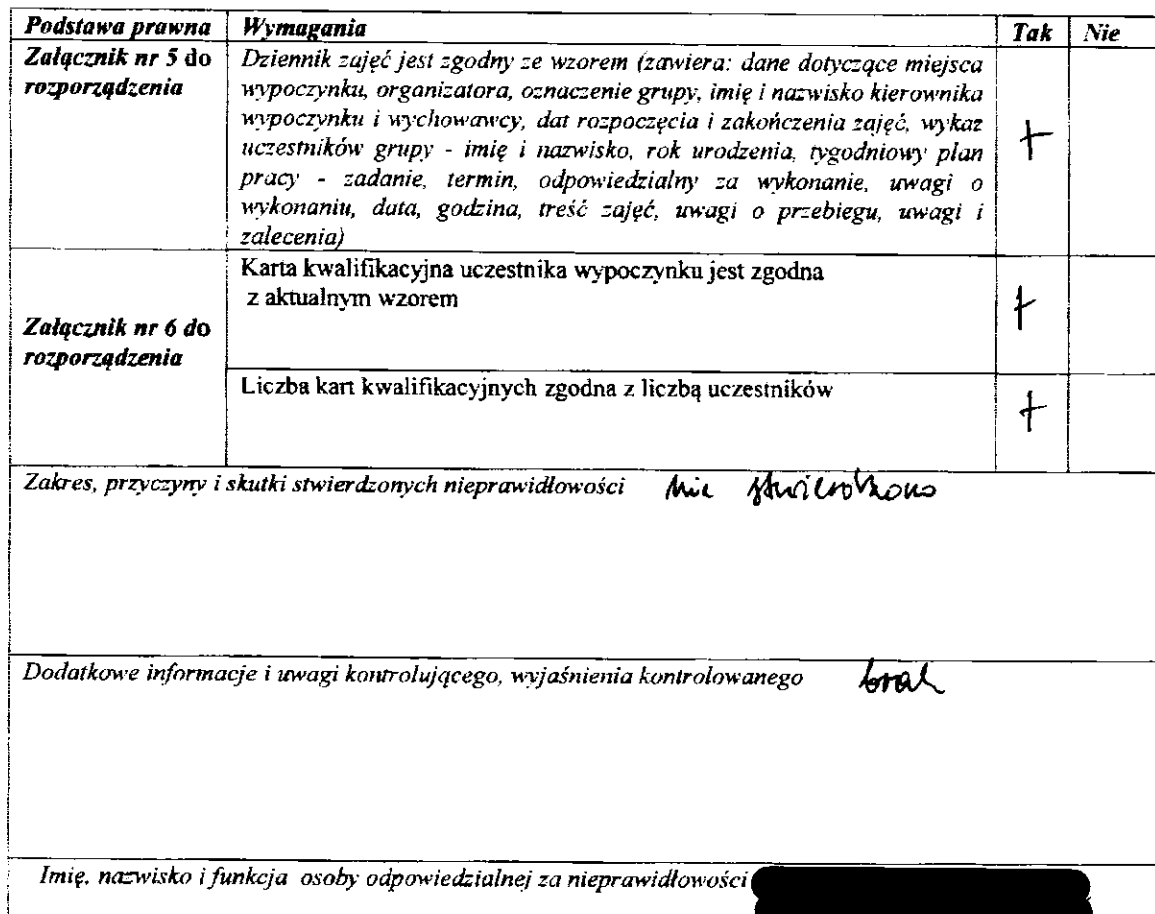 Podstawa prawna Wymagania Tak Nie
Załącznik nr 5 do
rozporządzenia
Dziennik zajęć jest zgodny ze wzorem (zawiera: dane dotyczące miejsca
wypoczynku, organizatora, oznaczenie grupy, imię i nazwisko kierownika
wypoczynku i wychowawcy, dat rozpoczęcia i zakończenia zajęć, wykaz
uczestników grupy - imię i nazwisko, rok urodzenia, tygodniowy plan
pracy - zadanie, termin, odpowiedzialny za wykonanie, uwagi o
wykonaniu, data, godzina, treść zajęć, uwagi o przebiegu, uwagi i
zalecenia)
+
Załącznik nr 6 do
rozporządzenia
Karta kwalifikacyjna uczestnika wypoczynku jest zgodna
z aktualnym wzorem
+
Liczba kart kwalifikacyjnych zgodna z liczbą uczestników
+
Zakres, przyczyny i skutki stwierdzonych nieprawidłowości nie stwierdzono
Dodatkowe informacje i uwagi kontrolującego, wyjaśnienia kontrolowanego brak
Imię, nazwisko i funkcja osoby odpowiedzialnej za nieprawidłowości